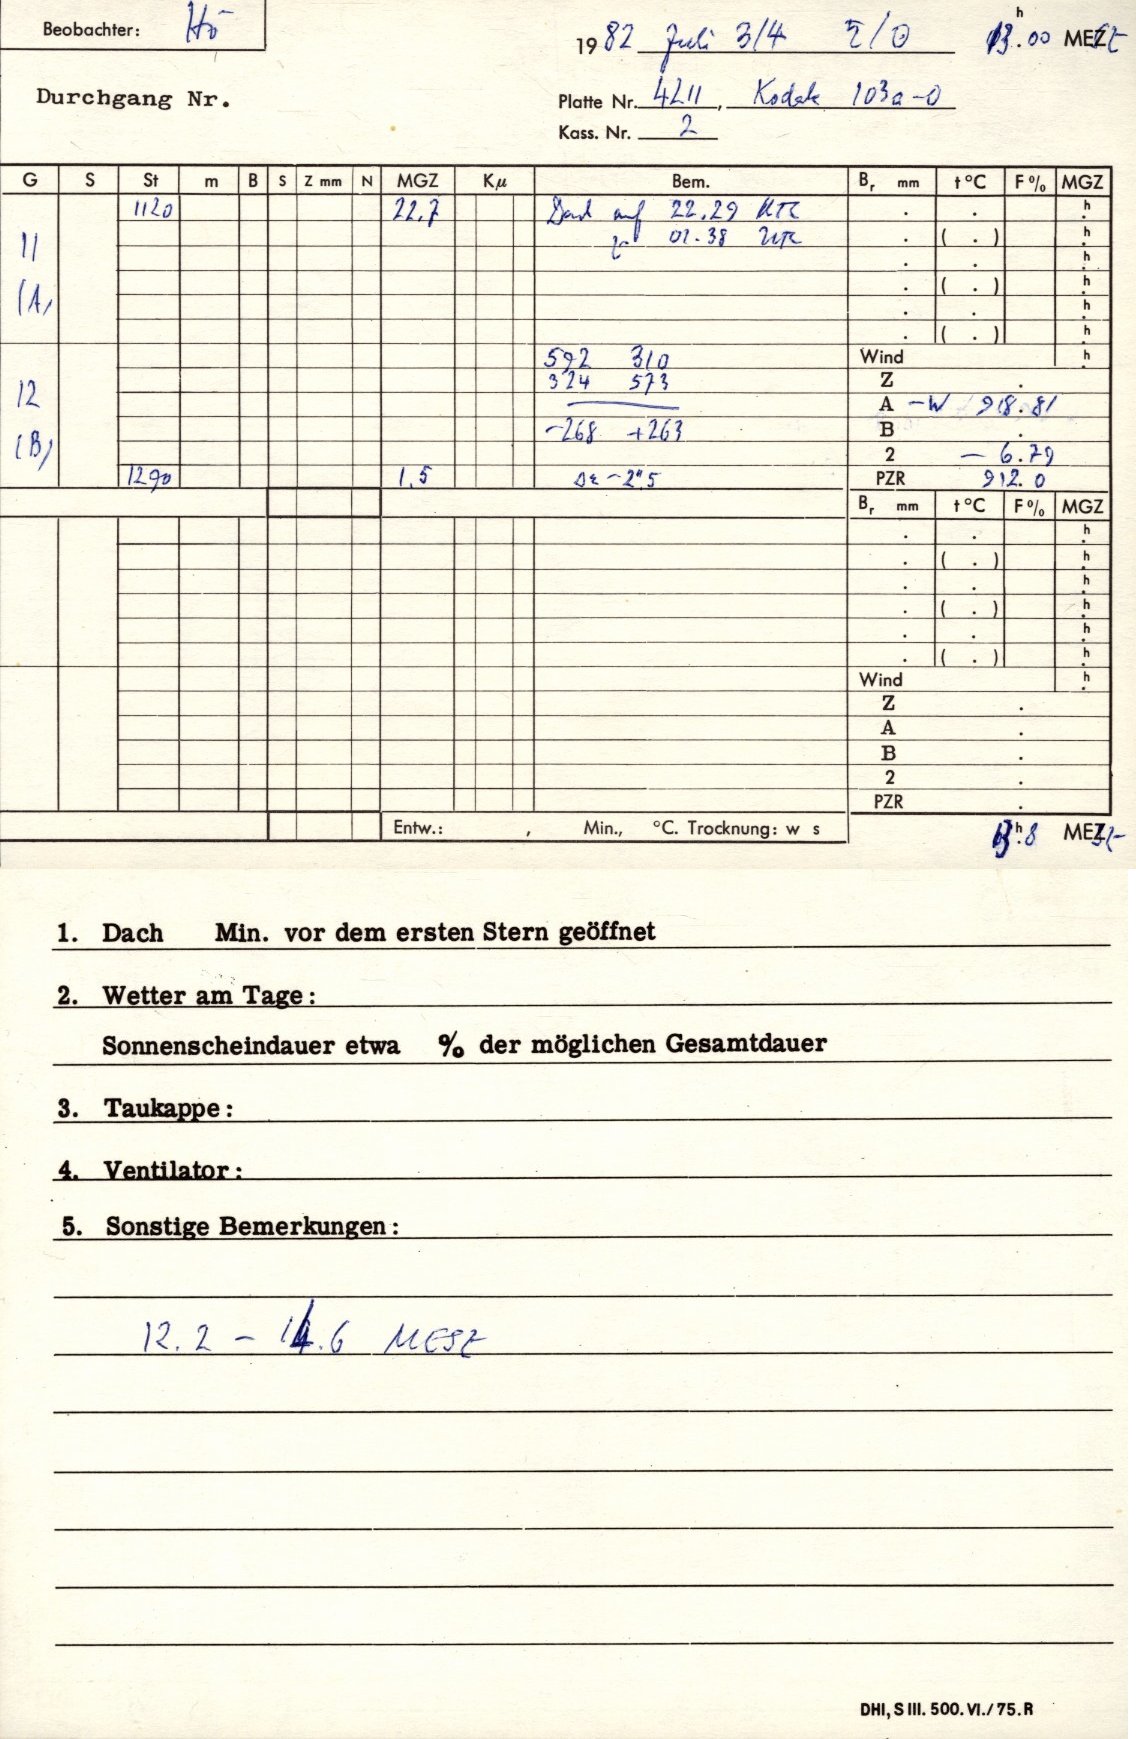 Beobachter: Hö
1982 Juli 3/4 I/O 13.h00 MESZ
Durchgang Nr.
Platte Nr. 4211, Kodak 103a-O
Kass. Nr. 2
G S St m B S Z mm N MGZ Kµ Bem. Br mm t °C F % MGZ
1120 22.7 Dach auf 22.29 UTC . . h
11 zu 01.38 UTC . ( . ) h
. . h
(A) . ( . ) h
. . h
. ( . ) h
592 310 Wind h
324 573 Z .
12 A -W 918.81
-268 +263 B .
(B) 2 - 6.79
1290 1.5 Δε -2".5 PZR 912.0
Br mm t °C F % MGZ
. . h
. ( . ) h
. . h
. ( . ) h
. . h
. ( . ) h
Wind h
Z .
A .
B .
2 .
PZR .
Entw.: , Min., °C. Trocknung: w s
13h.8 MESZ
1. Dach Min. vor dem ersten Stern geöffnet
2. Wetter am Tage:
Sonnenscheindauer etwa % der möglichen Gesamtdauer
3. Taukappe:
4. Ventilator:
5. Sonstige Bemerkungen:
12.2 - 14.6 MESZ
DHI, S III. 500. VI./75. R